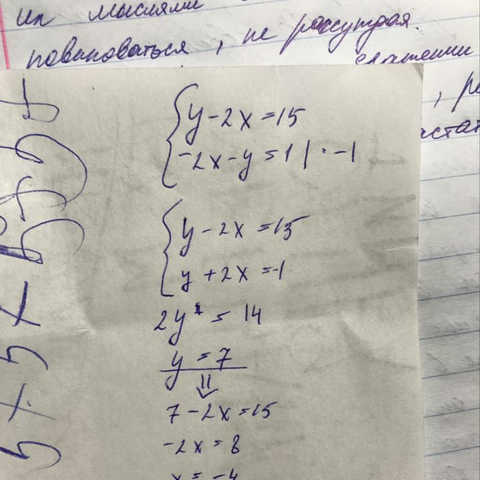 их мыслями
повиноваться, не рассуждая.
y - 2x = 15
-2x - y = 1 | · -1
y - 2x = 15
y + 2x = -1
2y = 14
y = 7
⇓
7 - 2x = 15
-2x = 8
x = -4